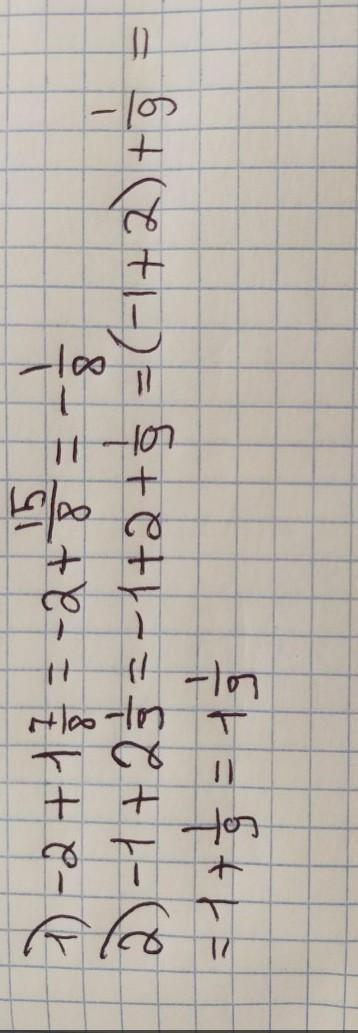 1) -2 + 1 7/8 = -2 + 15/8 = - 1/8
2) -1 + 2 1/9 = -1 + 2 + 1/9 = (-1 + 2) + 1/9 =
= 1 + 1/9 = 1 1/9